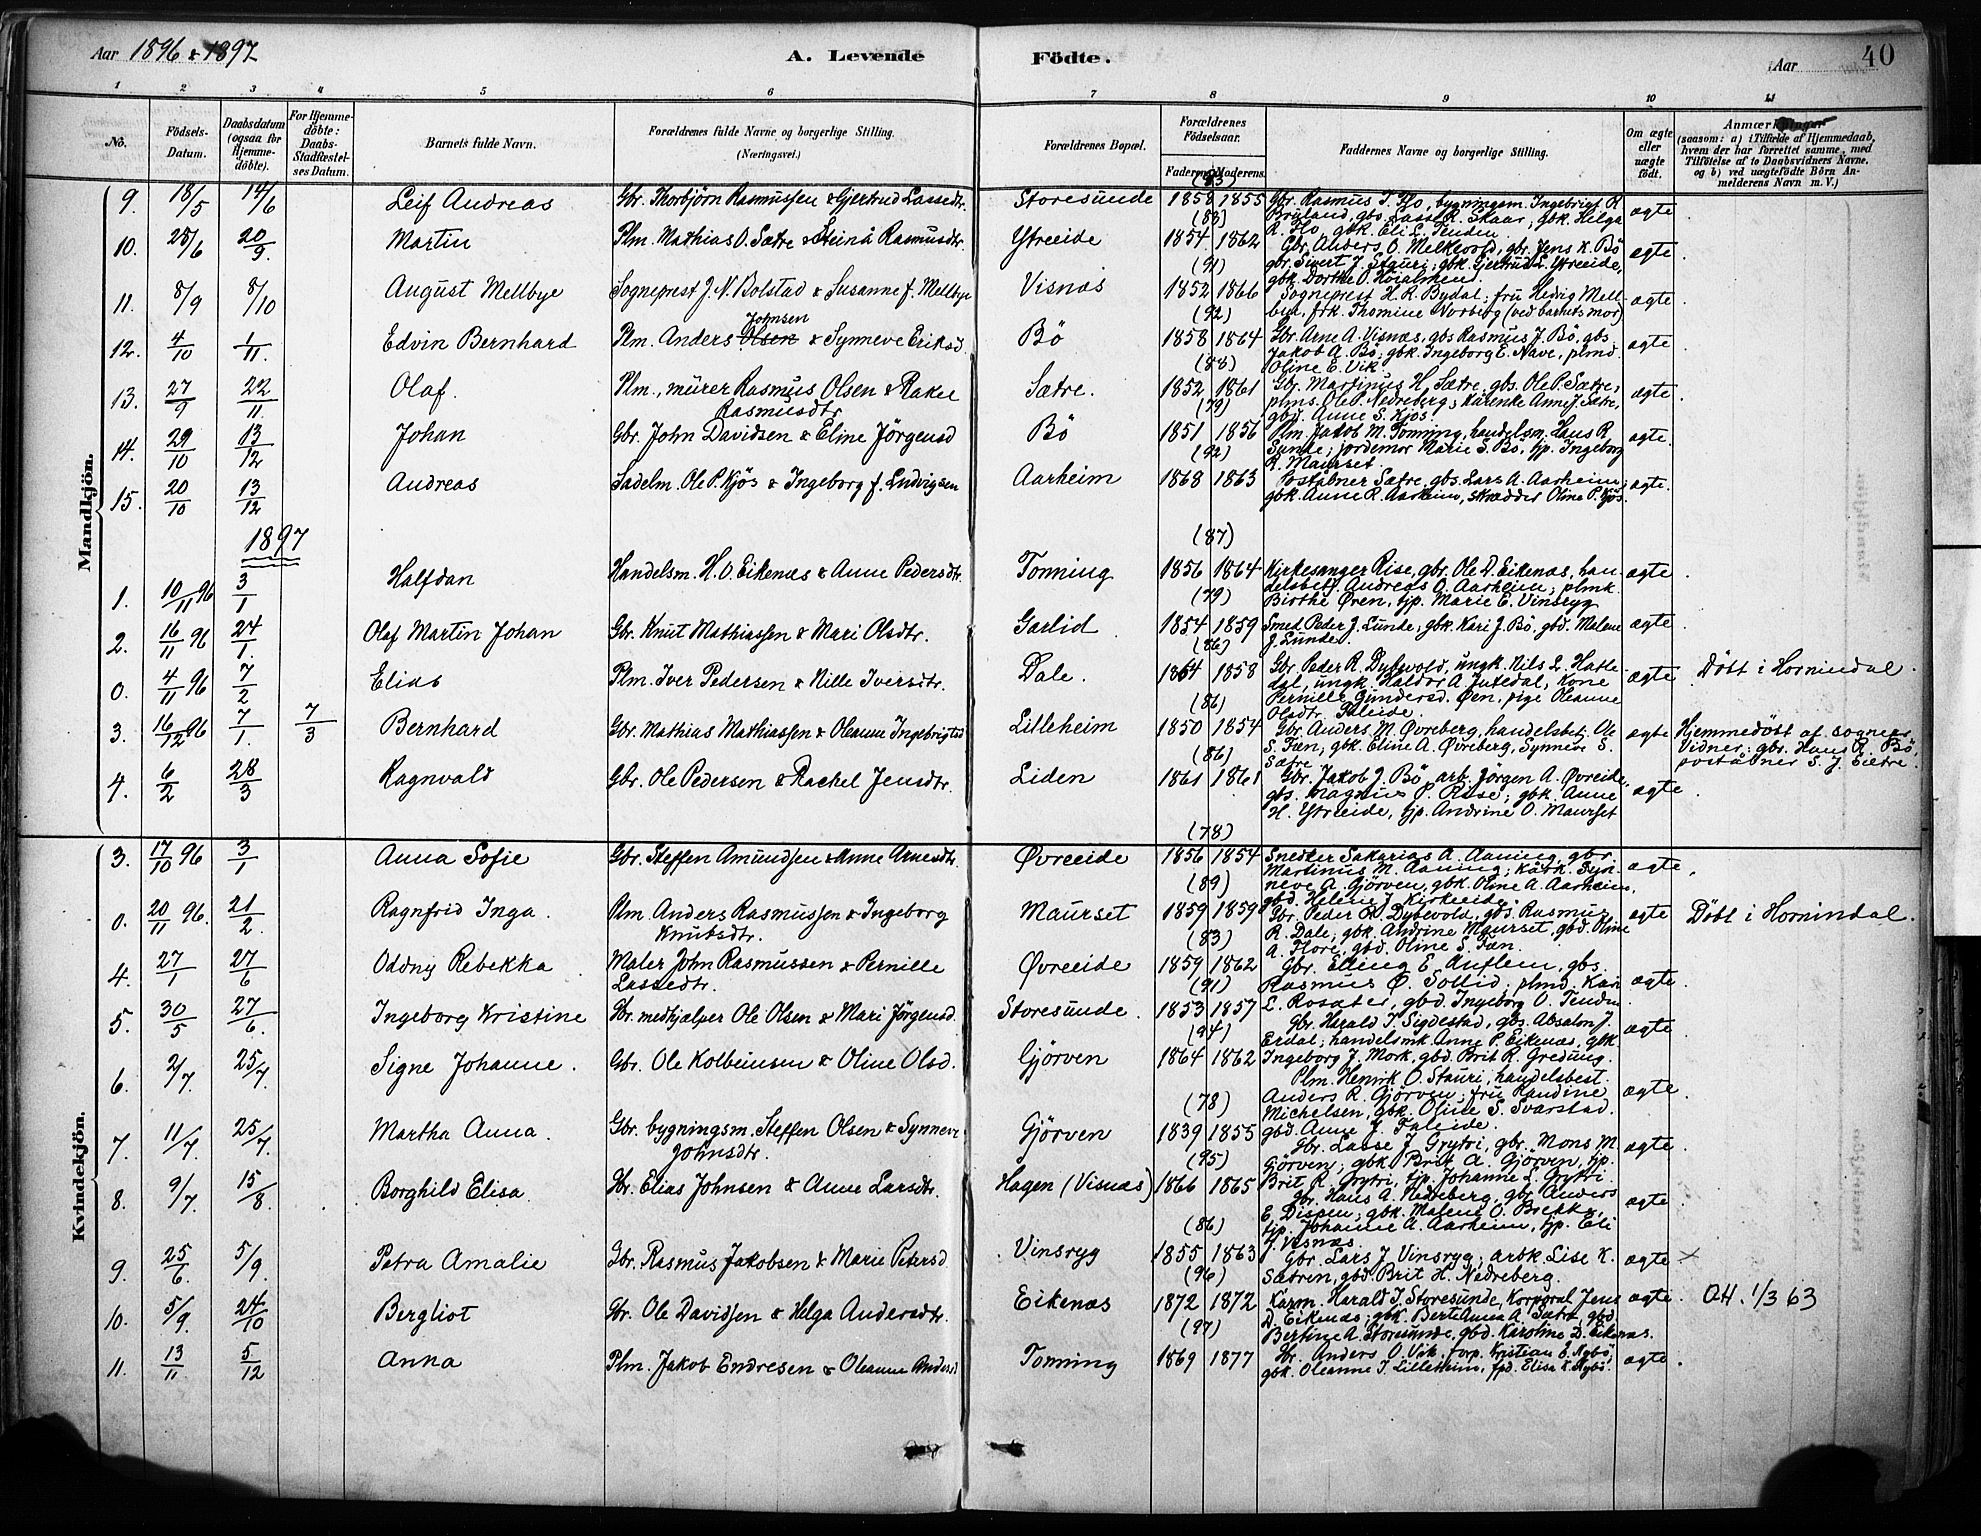 Aar 1896 & 1897 A. Levende Födte. Aar 40
1 2 3 4 5 6 7 8 9 10 11
No. Födsels-Datum. Daabsdatum (ogsaa for Hjemme-döbte). For Hjemme-döbte: Daabs-Stadfæstel-ses Datum. Barnets fulde Navn. Forældrenes fulde Navne og borgerlige Stilling. (Næringsvei.) Forældrenes Bopæl. Forældrenes Födselsaar. Faderens. Moderens. Faddernes Navne og borgerlige Stilling. Om ægte eller uægte födt. Anmærkninger (saasom: a) i Tilfælde af Hjemmedaab, hvem der har forrettet samme, med Tilföielse af to Daabsvidners Navne, og b) ved uægtefödte Börn Anmelderens Navn m. V.)
Mandkjön.
9. 18/5 14/6 Leif Andreas Gbr. Thorbjörn Rasmussen & Gjertrud Lassedtr. Storesunde (83) 1858 1855 Gbr. Rasmus T. Flo, bygningsm. Ingebrigt R.
Bryland, gbs. Lasse R. Skaar, gbk. Helga
R. Flo, gbk. Eli L. Tenden. ægte.
10. 28/6 20/9. Martin Plm. Mathias O. Sætre & Steinå Rasmusdtr. Ytreeide (83) 1854 1862 Gbr. Anders O. Melkevold, gbr. Jens K. Bö
gbr. Sivert J. Stauri; gbk. Gjertrud L. Ytreeide,
gbk. Dorthe O. ægte.
11. 8/9 8/10 August Mellbye Sogneprest J. N. Bolstad & Susanne f. Mellbye Visnæs (91) 1852 1866 Sogneprest H. R. Bydal; fru Hedvig Mell-
bye, frk. Thomine Norberg (ved barnets mor) ægte.
12. 4/10 1/11. Edvin Bernhard Plm. Anders Olsen Johnsen & Synneve Eriksd. Bö (92) 1858 1864 Gbr. Arne A. Visnæs, gbs Rasmus J. Bö, gbs.
Jakob A. Bö; gbk. Ingeborg E. Nave, plmd.
Oline E. Vik. ægte.
13. 27/9 22/11. Olaf. Plm., mürer Rasmus Olsen & Rakel
Rasmusdtr Sætre. (88) 1852 1861 Gbr. Martinus H. Sætre, gbs. Ole P. Sætre,
plms. Ole P. Nedreberg; kårenke Anne J. Sætre,
gbd. Anne S. Kjös. ægte.
14. 29/10 13/12 Johan Gbr. John Davidsen & Eline Jörgensd Bö (79) 1851 1856 Plm. Jakob M. Tonning, handelsm. Hans R
Sunde; jordemor Marie S. Bö, tjp. Ingeborg
R. Maurset. ægte.
15. 20/10 13/12 Andreas Sadelm. Ole P. Kjös & Ingeborg f. Ludvigsen Aarheim (92) 1868 1863 Poståbner Sætre, gbs. Lars A. Aarheim;
gbk. Anne R. Aarheim, skrædder Oline P. Kjös. ægte.
1897
1. 10/11 96 3/1 Halfdan Handelsm. H. O. Eikenæs & Anne Pedersdtr. Tonning (87) 1856 1864 Kirkesanger Rise, gbr. Ole D. Eikenæs, han-
delsbetj. Andreas O. Aarheim; plmk
Birthe Øren, tjp. Marie E. Vinsryg ægte.
2. 16/11 96 24/1. Olaf Martin Johan Gbr. Knut Mathiassen & Mari Olsdtr. Garlid (79) 1854 1859 Smed Peder J. Lunde, gbk. Kari J. Bö, gbd. Malene
J. Lunde. ægte.
0. 4/11 96 7/2 Elias Plm. Iver Pedersen & Nille Iversdtr. Dale. (86) 1864 1858 Gbr. Peder R. Dybevold, ungk. Nils L. Hatle-
dal, ungk. Haldor A. Jutedal, kone
Pernille Gundersd. Øen, pige Oleanne
Olsdtr. Faleide. ægte. Döbt i Hornindal.
3. 16/12 96 7/1. 7/3 Bernhard Gbr. Mathias Mathiassen & Oleanne Ingebrigtsd Lilleheim (86) 1850 1854 Gbr. Anders M. Øvreberg, handelsbetj. Ole
S. Fæn; gbk. Eline A. Øvreberg, Synneve S.
Sætre. ægte Hjemmedöbt af sognepr.
Vidner: gbr. Hans R. Bö,
poståbner S. J. Sætre.
4. 6/2 28/3 Ragnvald Gbr. Ole Pedersen & Rachel Jensdtr. Liden (86) 1861 1861 Gbr. Jakob J. Bö, arb. Jörgen A. Øvreeide,
gbs. Magnus P. Rise; gbk. Anne
H. Ytreeide, tjp. Andrine O. Maurset ægte.
Kvindekjön.
3. 17/10 96 3/1 Anna Sofie Gbr. Steffen Amundsen & Anne Arnesdtr. Øvreeide (78) 1856 1854 Snedker Sakarias A. Aaning, gbr.
Martinus M. Aaning; kårk. Syn-
neve A. Gjörven, gbk. Oline A. Aarheim,
gbd. Helene J. Kirkeeide. ægte.
0. 20/11 96. 21/2. Ragnfrid Inga. Plm. Anders Rasmussen & Ingeborg
Knutsdtr. Maurset (89) 1859 1859 Gbr. Peder R. Dybevold, gbs. Rasmus
R. Dale; gbk. Andrine Maurset, gbd. Oline
A. Flore, gbd. Oline S. Fæn. ægte Döbt i Hornindal.
4. 27/1 27/6 Oddny Rebekka Maler John Rasmussen & Pernille
Lassedtr. Øvreeide (83) 1859 1862 Gbr. Elling E. Auflem, gbs.
Rasmus Ø. Sollid; plmd. Kari
L. Rosæter, gbd. Ingeborg O. Tenden. ægte.
5. 30/5 27/6. Ingeborg Kristine Gbr. medhjælper Ole Olsen & Mari Jörgensd. Storesunde. (91) 1853 1857 Gbr. Harald T. Sigdestad, gbs. Absalon J.
Erdal; handelsmk. Anne P. Eikenæs, gbk
Ingeborg J. Mork, gbd. Brit R. Gredung. ægte.
6. 2/7. 25/7 Signe Johanne. Gbr. Ole Kolbeinsen & Oline Olsd. Gjörven (94) 1864 1862 Plm. Henrik O. Stauri, handelsbest.
Anders R. Gjörven; fru Randine
Michelsen, gbk. Oline S. Svarstad.
gbd. Anne J. Faleide. ægte.
7. 11/7. 25/7. Martha Anna. Gbr. bygningsm. Steffen Olsen & Synneve
Johnsdtr. Gjörven (78) 1839 1855 Gbr. Lasse J. Grytri, gbr. Mons M
Gjörven; gbk. Brit A. Gjörven, tjp.
Brit R. Grytri, tjp. Johanne L. Grytri. ægte.
8. 9/7 15/8. Borghild Elisa. Gbr. Elias Johnsen & Anne Larsdtr. Hagen (Visnæs) (95) 1866 1865 Gbr. Hans A. Nedreberg, gbr. Anders
E. Dispen; gbk. Malene O. Brekke,
tjp. Johanne A. Aarheim, tjp. Eli
J. Visnæs. ægte.
9. 25/6. 5/9. Petra Amalie Gbr. Rasmus Jakobsen & Marie Petersd Vinsryg (86) 1855 1863 Gbr. Lars J. Vinsryg; arbk Lise K.
Sætren, gbd. Brit H. Nedreberg. ægte ×
10. 5/9. 24/10 Bergliot Gbr. Ole Davidsen & Helga Andersdtr. Eikenæs (96) 1872 1872 Kårm. Harald T. Storesunde, Korporal Jens
D. Eikenæs; gbk. Berte Anna A. Sætre, gbd.
Bertine A. Storesunde, gbd. Karoline D. Eikenæs. ægte. OH. 1/3 63
11. 13/11 5/12 Anna Plm. Jakob Endresen & Oleanne Andersd Tonning (97) 1869 1877 Gbr. Anders O. Vik, forp. Kristian E. Nybö,
gbk. Oleanne T. Lilleheim, fpd. Elisa K. Nybö. ægte.